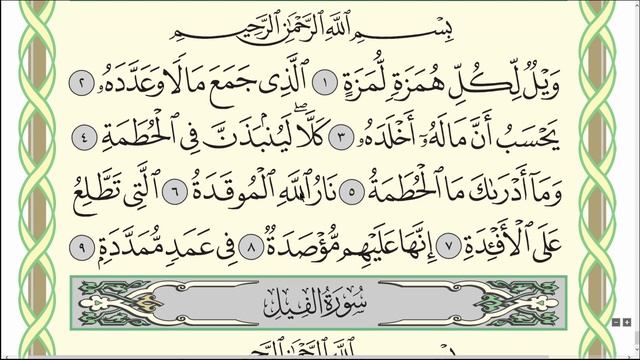 بِسْمِ اللَّهِ الرَّحْمَٰنِ الرَّحِيمِ
وَيْلٌ لِّكُلِّ هُمَزَةٍ لُّمَزَةٍ ١ الَّذِى جَمَعَ مَالًا وَعَدَّدَهُۥ ٢
يَحْسَبُ أَنَّ مَالَهُۥٓ أَخْلَدَهُۥ ٣ كَلَّا ۖ لَيُنۢبَذَنَّ فِى الْحُطَمَةِ ٤
وَمَآ أَدْرَىٰكَ مَا الْحُطَمَةُ ٥ نَارُ اللَّهِ الْمُوقَدَةُ ٦ الَّتِى تَطَّلِعُ
عَلَى الْأَفْـِٔدَةِ ٧ إِنَّهَا عَلَيْهِم مُّؤْصَدَةٌ ٨ فِى عَمَدٍ مُّمَدَّدَةٍۭ ٩
سُورَةُ الْفِيلِ
بِسْمِ اللَّهِ الرَّحْمَٰنِ الرَّحِيمِ